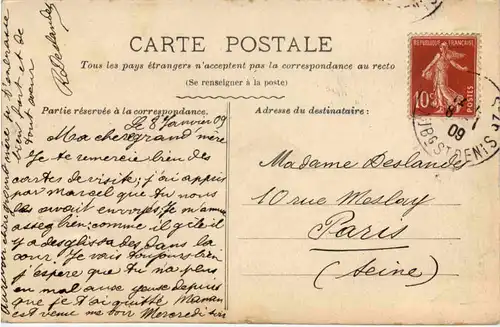 CARTE POSTALE
Tous les pays étrangers n'acceptent pas la correspondance au recto
(Se renseigner à la poste)
Partie réservée à la correspondance.
Adresse du destinataire:
Le 8 Janvier 09
Ma chère grand mère
Je te remercie bien des
cartes de visite; j'ai appris
par Marcel que tu nous
les avait envoyés. Je m'amuse
assez bien; comme il gèle il
y a des glissades dans la
cour. Je vais toujours bien
j'espère que tu n'a plus
en mal aux
depuis
que je t'ai quitté. Maman
est venue me voir Mercredi
Au revoir chère grand mère je t'embrasse
bien fort et de
tout cœur
R Deslandes
Madame Deslandes
10 rue Meslay
Paris
(Seine)
REPUBLIQUE FRANÇAISE
10c
POSTES
09
FBG ST DENIS